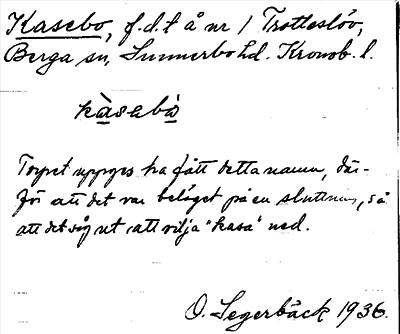 Kasebo, f.d.t å nr 1 Trotteslöv,
Berga sn, Sunnerbo hd. Kronob. l.
kàsebò
Torpet uppges ha fått detta namn, där-
för att det var beläget på en sluttning, så
att det såg ut att vilja "kasa" ned.
O. Segerbäck 1936.